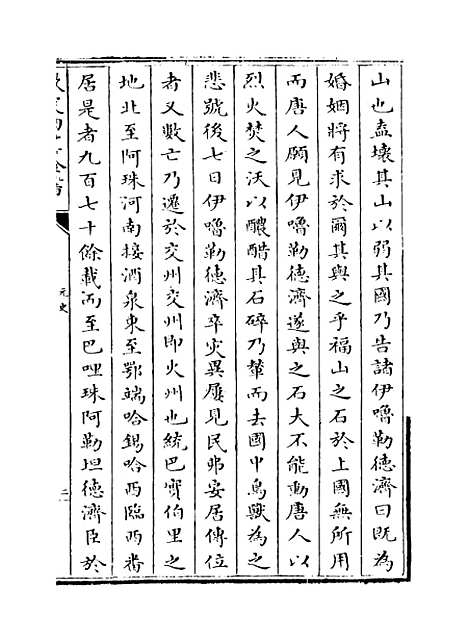 山也盍壞其山以弱其國乃告諸伊嚕勒德濟曰既為
婚姻將有求於爾其與之乎福山之石於上國無所用
而唐人願見伊嚕勒德濟遂與之石大不能動唐人以
烈火焚之沃以醲醋其石碎乃輦而去國中鳥獸為之
悲號後七日伊嚕勒德濟卒灾異屢見民弗安居傳位
者又數亡乃遷於交州交州即火州也統巴實伯里之
地北至阿珠河南接酒泉東至鄂端哈錫哈西臨西番
居是者九百七十餘載而至巴哩珠阿勒坦德濟臣於
元史